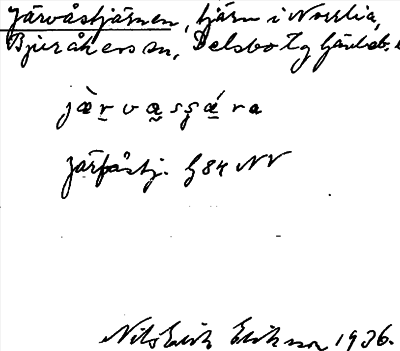 Järvåstjärnen, tjärn i Norrlia,
Bjuråkers sn, Delsbo tg Gävleb. l
jæ̀rvasʂá̤ra
Järfåstj. G84 NV
Nils Erik Eriksson 1936.